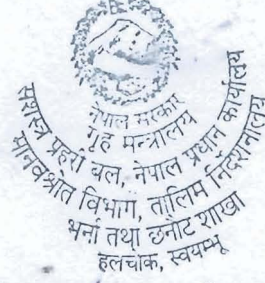 नेपाल सरकार
गृह मन्त्रालय
सशस्त्र प्रहरी बल, नेपाल प्रधान कार्यालय
मानवश्रोत विभाग, तालिम निर्देशनालय
भर्ना तथा छनौट शाखा
हलचोक, स्वयम्भू